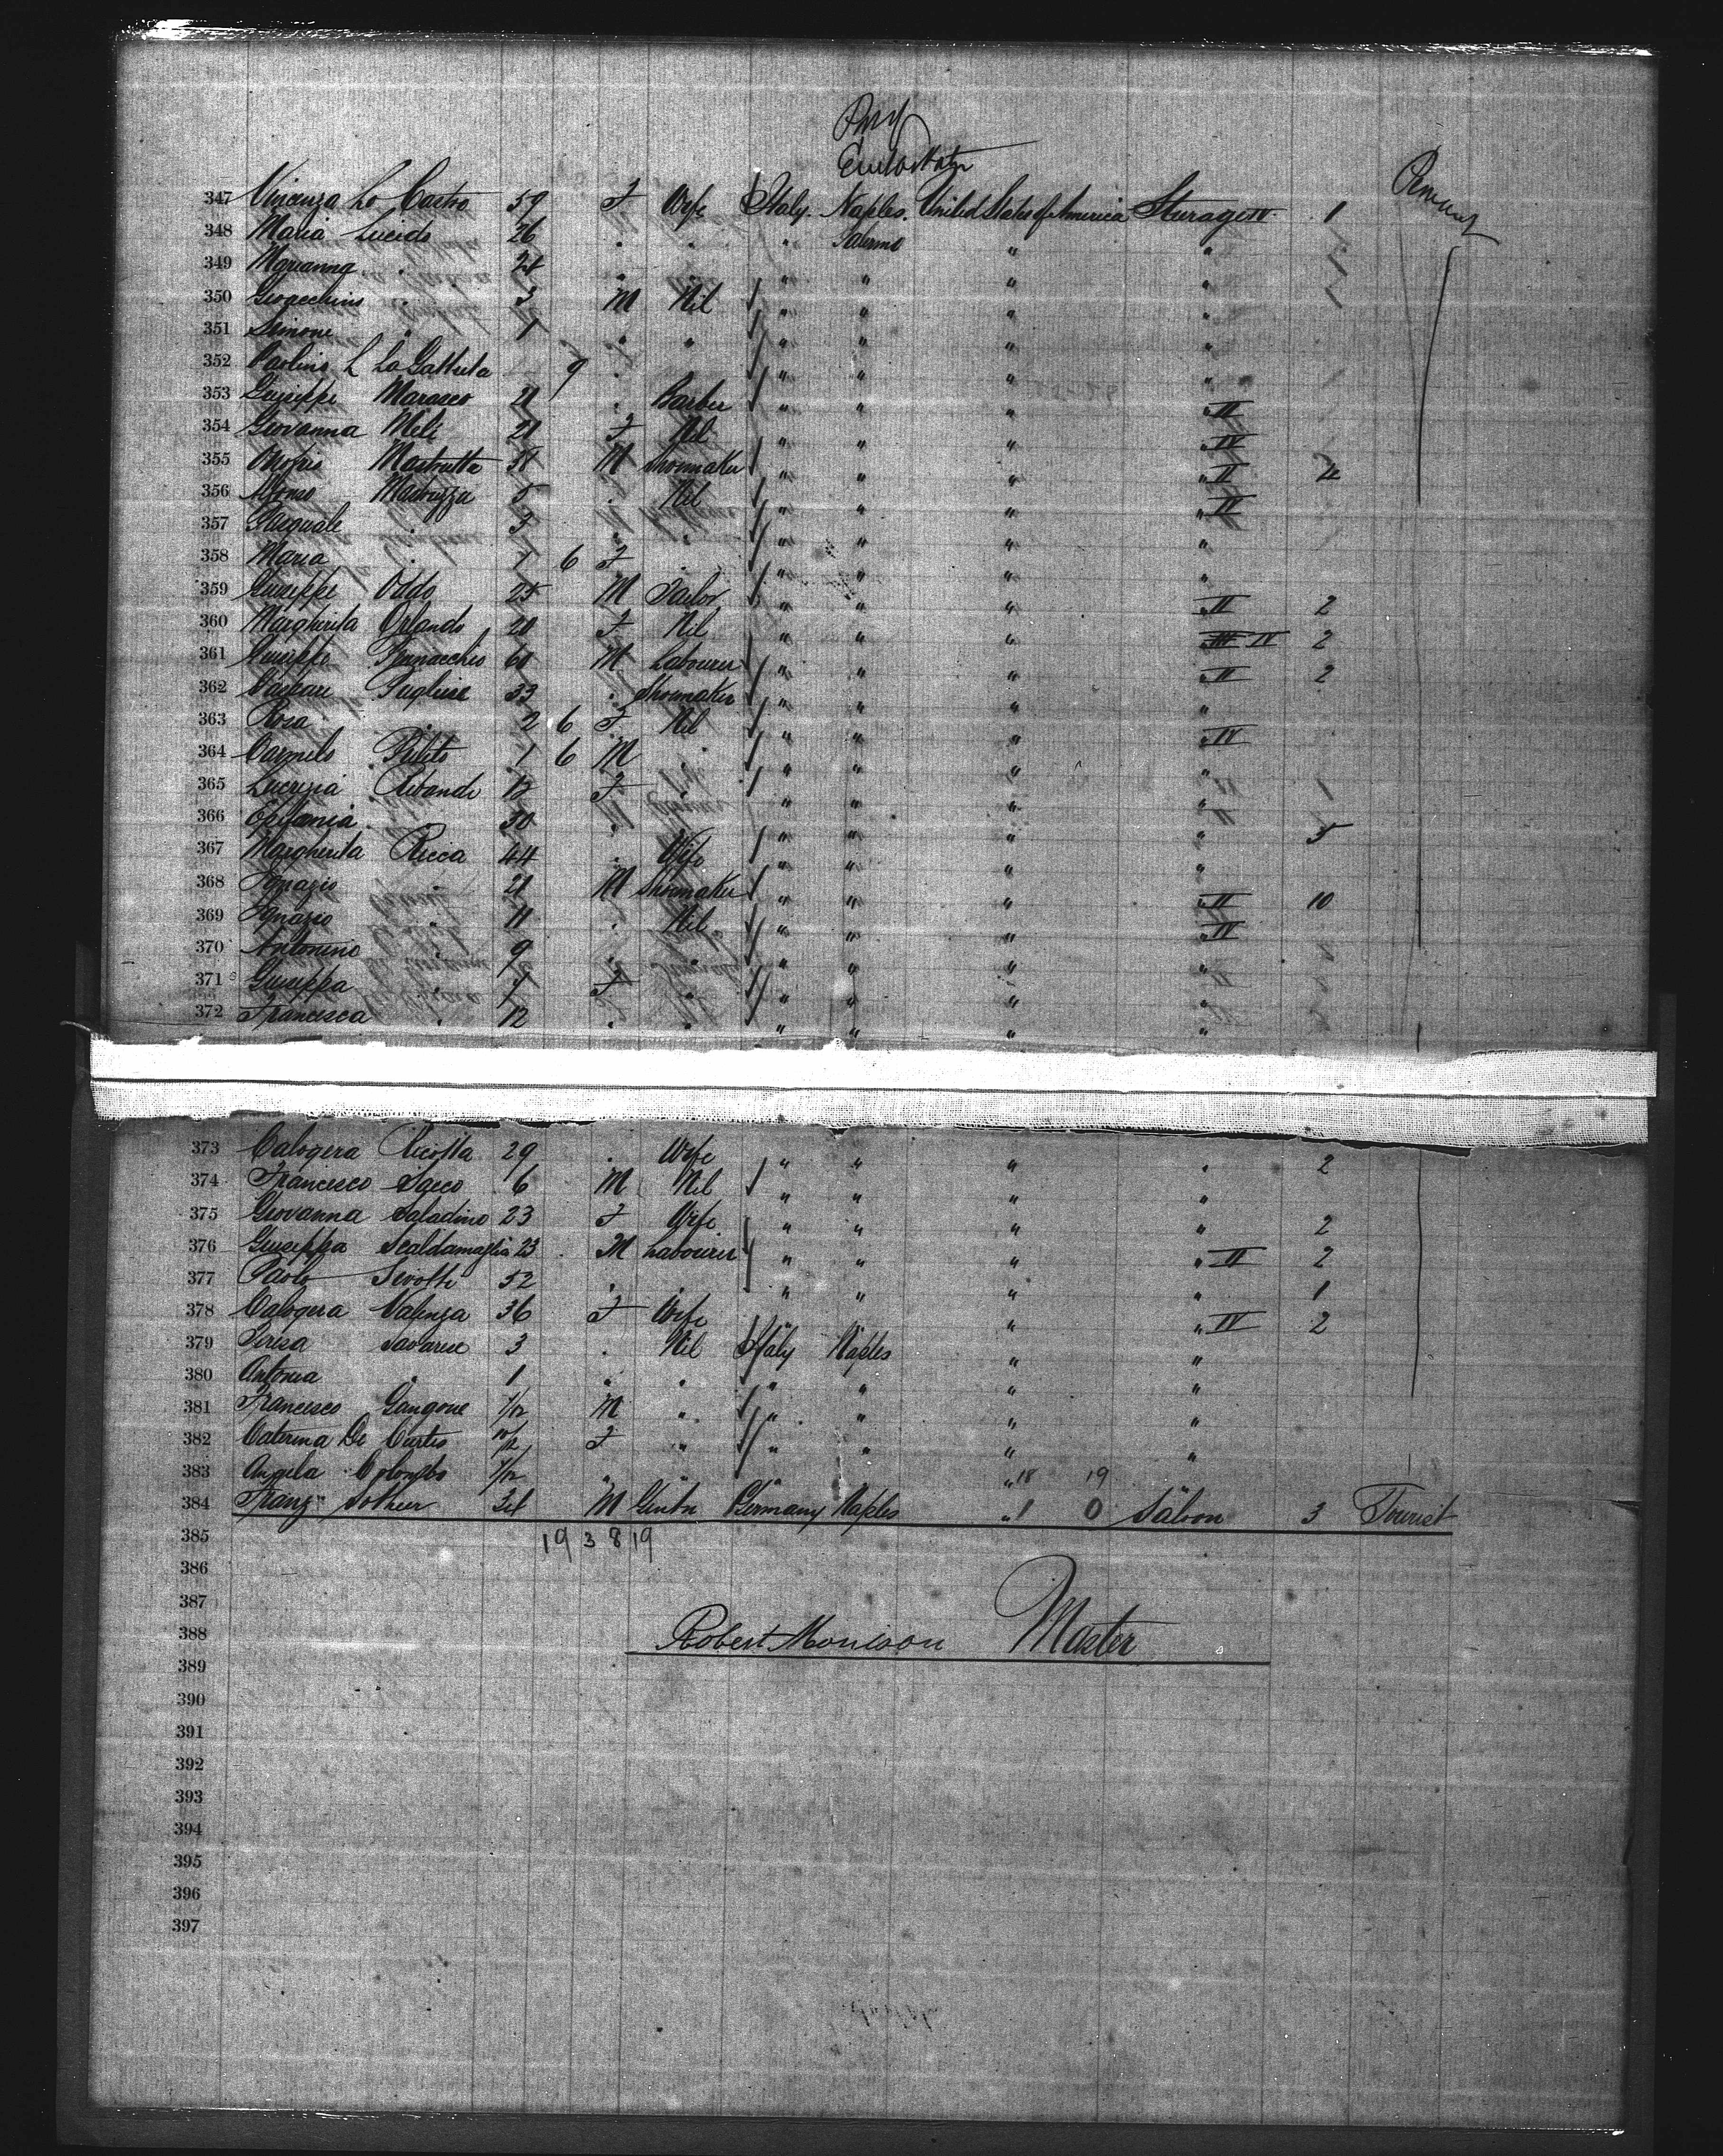 Port
Embarkation
347 Vincenza Lo Castro 59 F Wife Italy. Naples. United States of America Sturage IV. 1
348 Maria Lucido 26 . . " Palermo " "
349 Marianna . 24 " . " " " "
350 Gioacchino . 3 M Nil " " " "
351 Simone " 1 " " " " " "
352 Paolino L La Gattuta 9 . " " " "
353 Giuseppe Marasco 21 . Barber " " " " II
354 Giovanna Meli 21 F Nil " " " " IV
355 Onofrio 38 M Shoemaker " " " " II 4
356 Alfonso 5 . Nil " " " " IV
357 Pasquale . 3 " . " " " "
358 Maria . 1 6 F . " " " "
359 Giuseppe Oddo 25 M Tailor " " " " II 2
360 Margherita Orlando 20 F Nil " " " " IV 2
361 Giuseppe Pennacchio 60 M Labourer " " " " II 2
362 Gaspare Pugliese 33 . Shoemaker " " " "
363 Rosa . 2 6 F Nil " " " " IV
364 Carmelo 1 6 M . " " " "
365 Lucrezia 12 F . " " " " 1
366 . 30 . " " " " 5
367 Margherita Ricca 44 . Wife " " " "
368 Ignazio . 21 M Shoemaker " " " " II 10
369 Ignazio . 11 . Nil " " " " IV
370 Antonino . 9 . . " " " "
371 Giuseppa . 7 F " " " " "
372 Francesca . 12 . . " " " "
373 Calogera Ricotta 29 . Wife " " " . 2
374 Francesco Sacco 6 M Nil " " " "
375 Giovanna Saladino 23 F Wife " " " " 2
376 Giuseppa Scaldamaglia 23 . M Labourer " " " " II 2
377 Paolo 52 . " " " " 1
378 Calogera Valenza 36 F Wife " " " " IV 2
379 Teresa Savarese 3 . Nil Italy Naples " "
380 Antonia . 1 " . " " " "
381 Francesco Gangone 7/12 M " " " " "
382 Caterina De Curtis 10/12 F " " " " "
383 Angela Colombo 7/12 " " " " " 18 19
384 Franz 34 M Gentn Germany Naples " 1 0 Saloon 3 Tourist
385 19 3 8 19
386
387
388 Robert Morrison Master
389
390
391
392
393
394
395
396
397